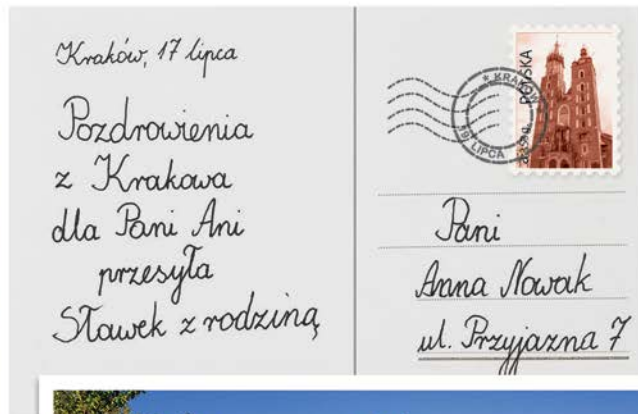 Kraków, 17 lipca
Pozdrowienia
z Krakowa
dla Pani Ani
przesyła
Sławek z rodziną
POLSKA
* KRAKÓW *
19 LIPCA
Pani
Anna Nowak
ul. Przyjazna 7